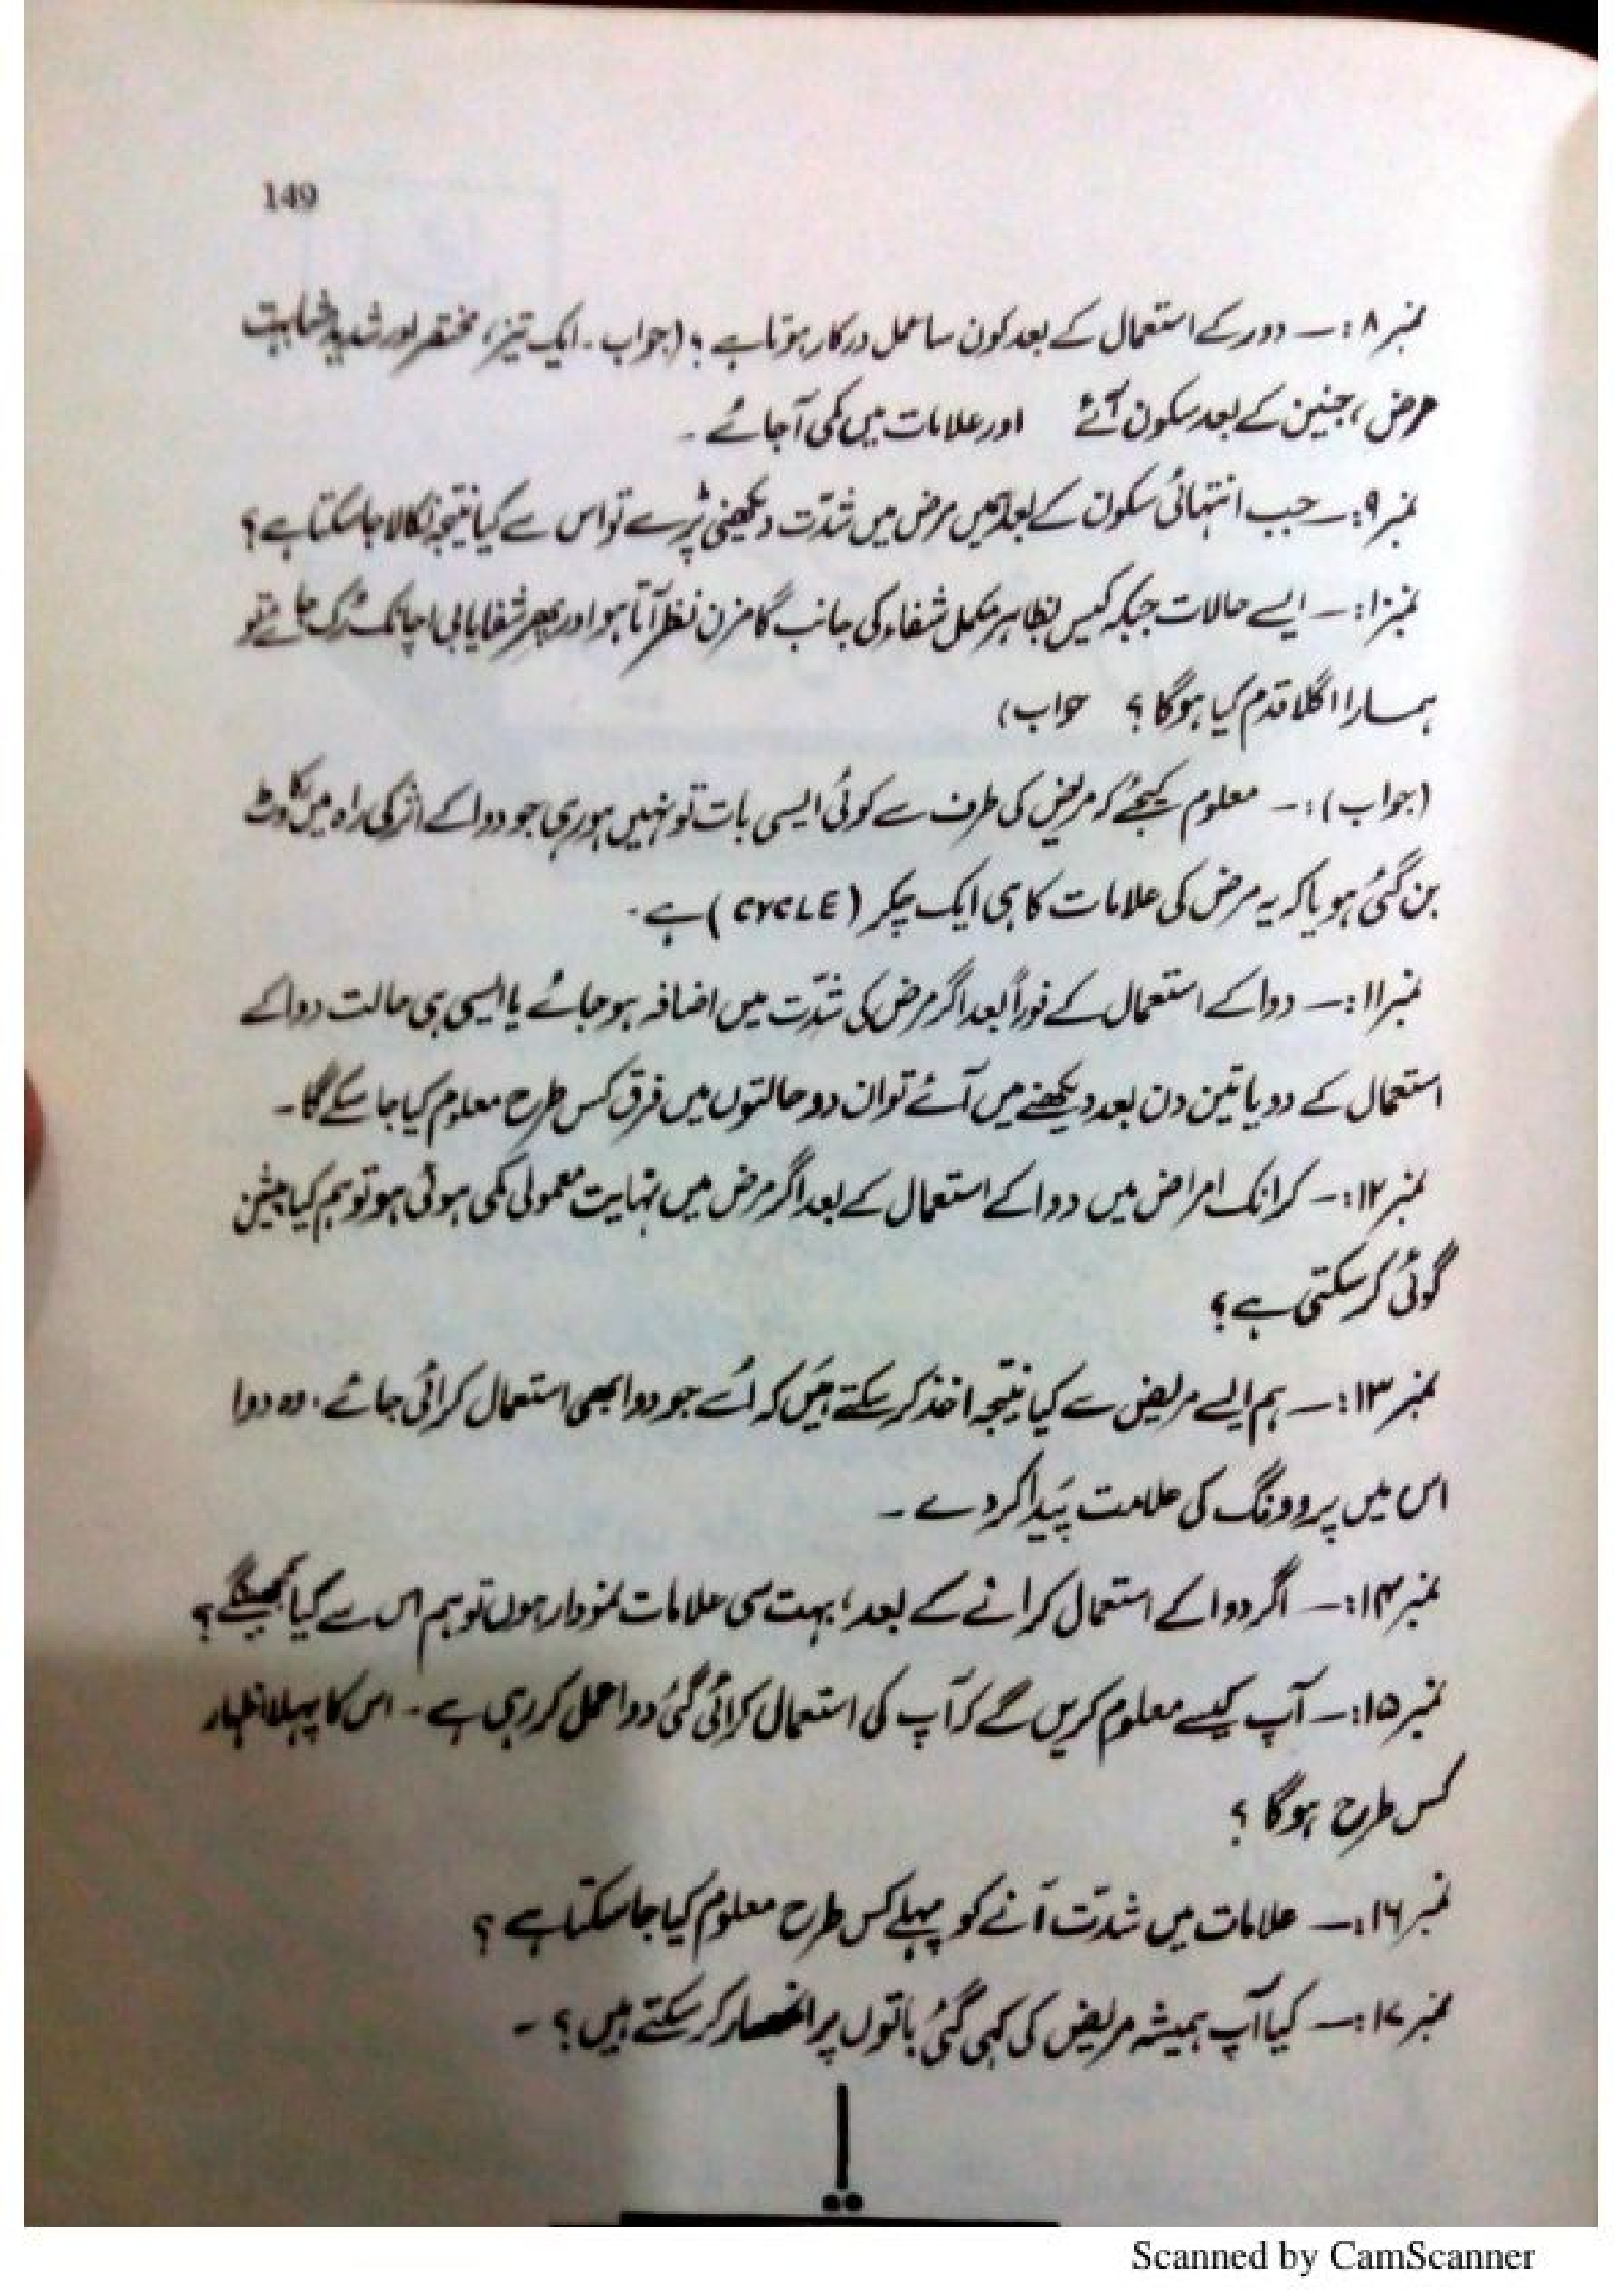 149
نمبر ۸:۔ دور کے استعمال کے بعد کون سا عمل درکار ہوتا ہے ؟ (جواب ۔ ایک تیز، مختصر اور شدید
مرض ، جنین کے بعد سکون آئے اور علامات میں کمی آجائے ۔
نمبر ۹:۔ جب انتہائی سکون کے بعد مرض میں شدّت دیکھنی پڑے تو اس سے کیا نتیجہ نکالا جا سکتا ہے ؟
نمبر ۱۰:۔ ایسے حالات جبکہ کیس بظاہر مکمل شفاء کی جانب گامزن نظر آتا ہو اور پھر شفایابی اچانک رُک جائے تو
ہمارا اگلا قدم کیا ہوگا ؟ جواب)
(جواب):۔ معلوم کیجئے کہ مریض کی طرف سے کوئی ایسی بات تو نہیں ہو رہی جو دوا کے اثر کی راہ میں رکاوٹ
بن گئی ہو یا کہ یہ مرض کی علامات کا ہی ایک چکر (CYCLE) ہے ۔
نمبر ۱۱:۔ دوا کے استعمال کے فوراً بعد اگر مرض کی شدّت میں اضافہ ہو جائے یا ایسی ہی حالت دوا کے
استعمال کے دو یا تین دن بعد دیکھنے میں آئے تو ان دو حالتوں میں فرق کس طرح معلوم کیا جا سکے گا ۔
نمبر ۱۲:۔ کرانک امراض میں دوا کے استعمال کے بعد اگر مرض میں نہایت معمولی کمی ہوئی ہو تو ہم کیا پیشن
گوئی کر سکتی ہے ؟
نمبر ۱۳:۔ ہم ایسے مریض سے کیا نتیجہ اخذ کر سکتے ہیں کہ اُسے جو دوا بھی استعمال کرائی جائے ۔ وہ دوا
اس میں پروونگ کی علامت پیدا کر دے ۔
نمبر ۱۴:۔ اگر دوا کے استعمال کرانے کے بعد ، بہت سی علامات نمودار ہوں تو ہم اس سے کیا سمجھیں گے ؟
نمبر ۱۵:۔ آپ کیسے معلوم کریں گے کہ آپ کی استعمال کرائی گئی دوا عمل کر رہی ہے ۔ اس کا پہلا اظہار
کس طرح ہوگا ؟
نمبر ۱۶:۔ علامات میں شدّت آنے کو پہلے کس طرح معلوم کیا جا سکتا ہے ؟
نمبر ۱۷:۔ کیا آپ ہمیشہ مریض کی کہی گئی باتوں پر انحصار کر سکتے ہیں ؟ ۔
Scanned by CamScanner